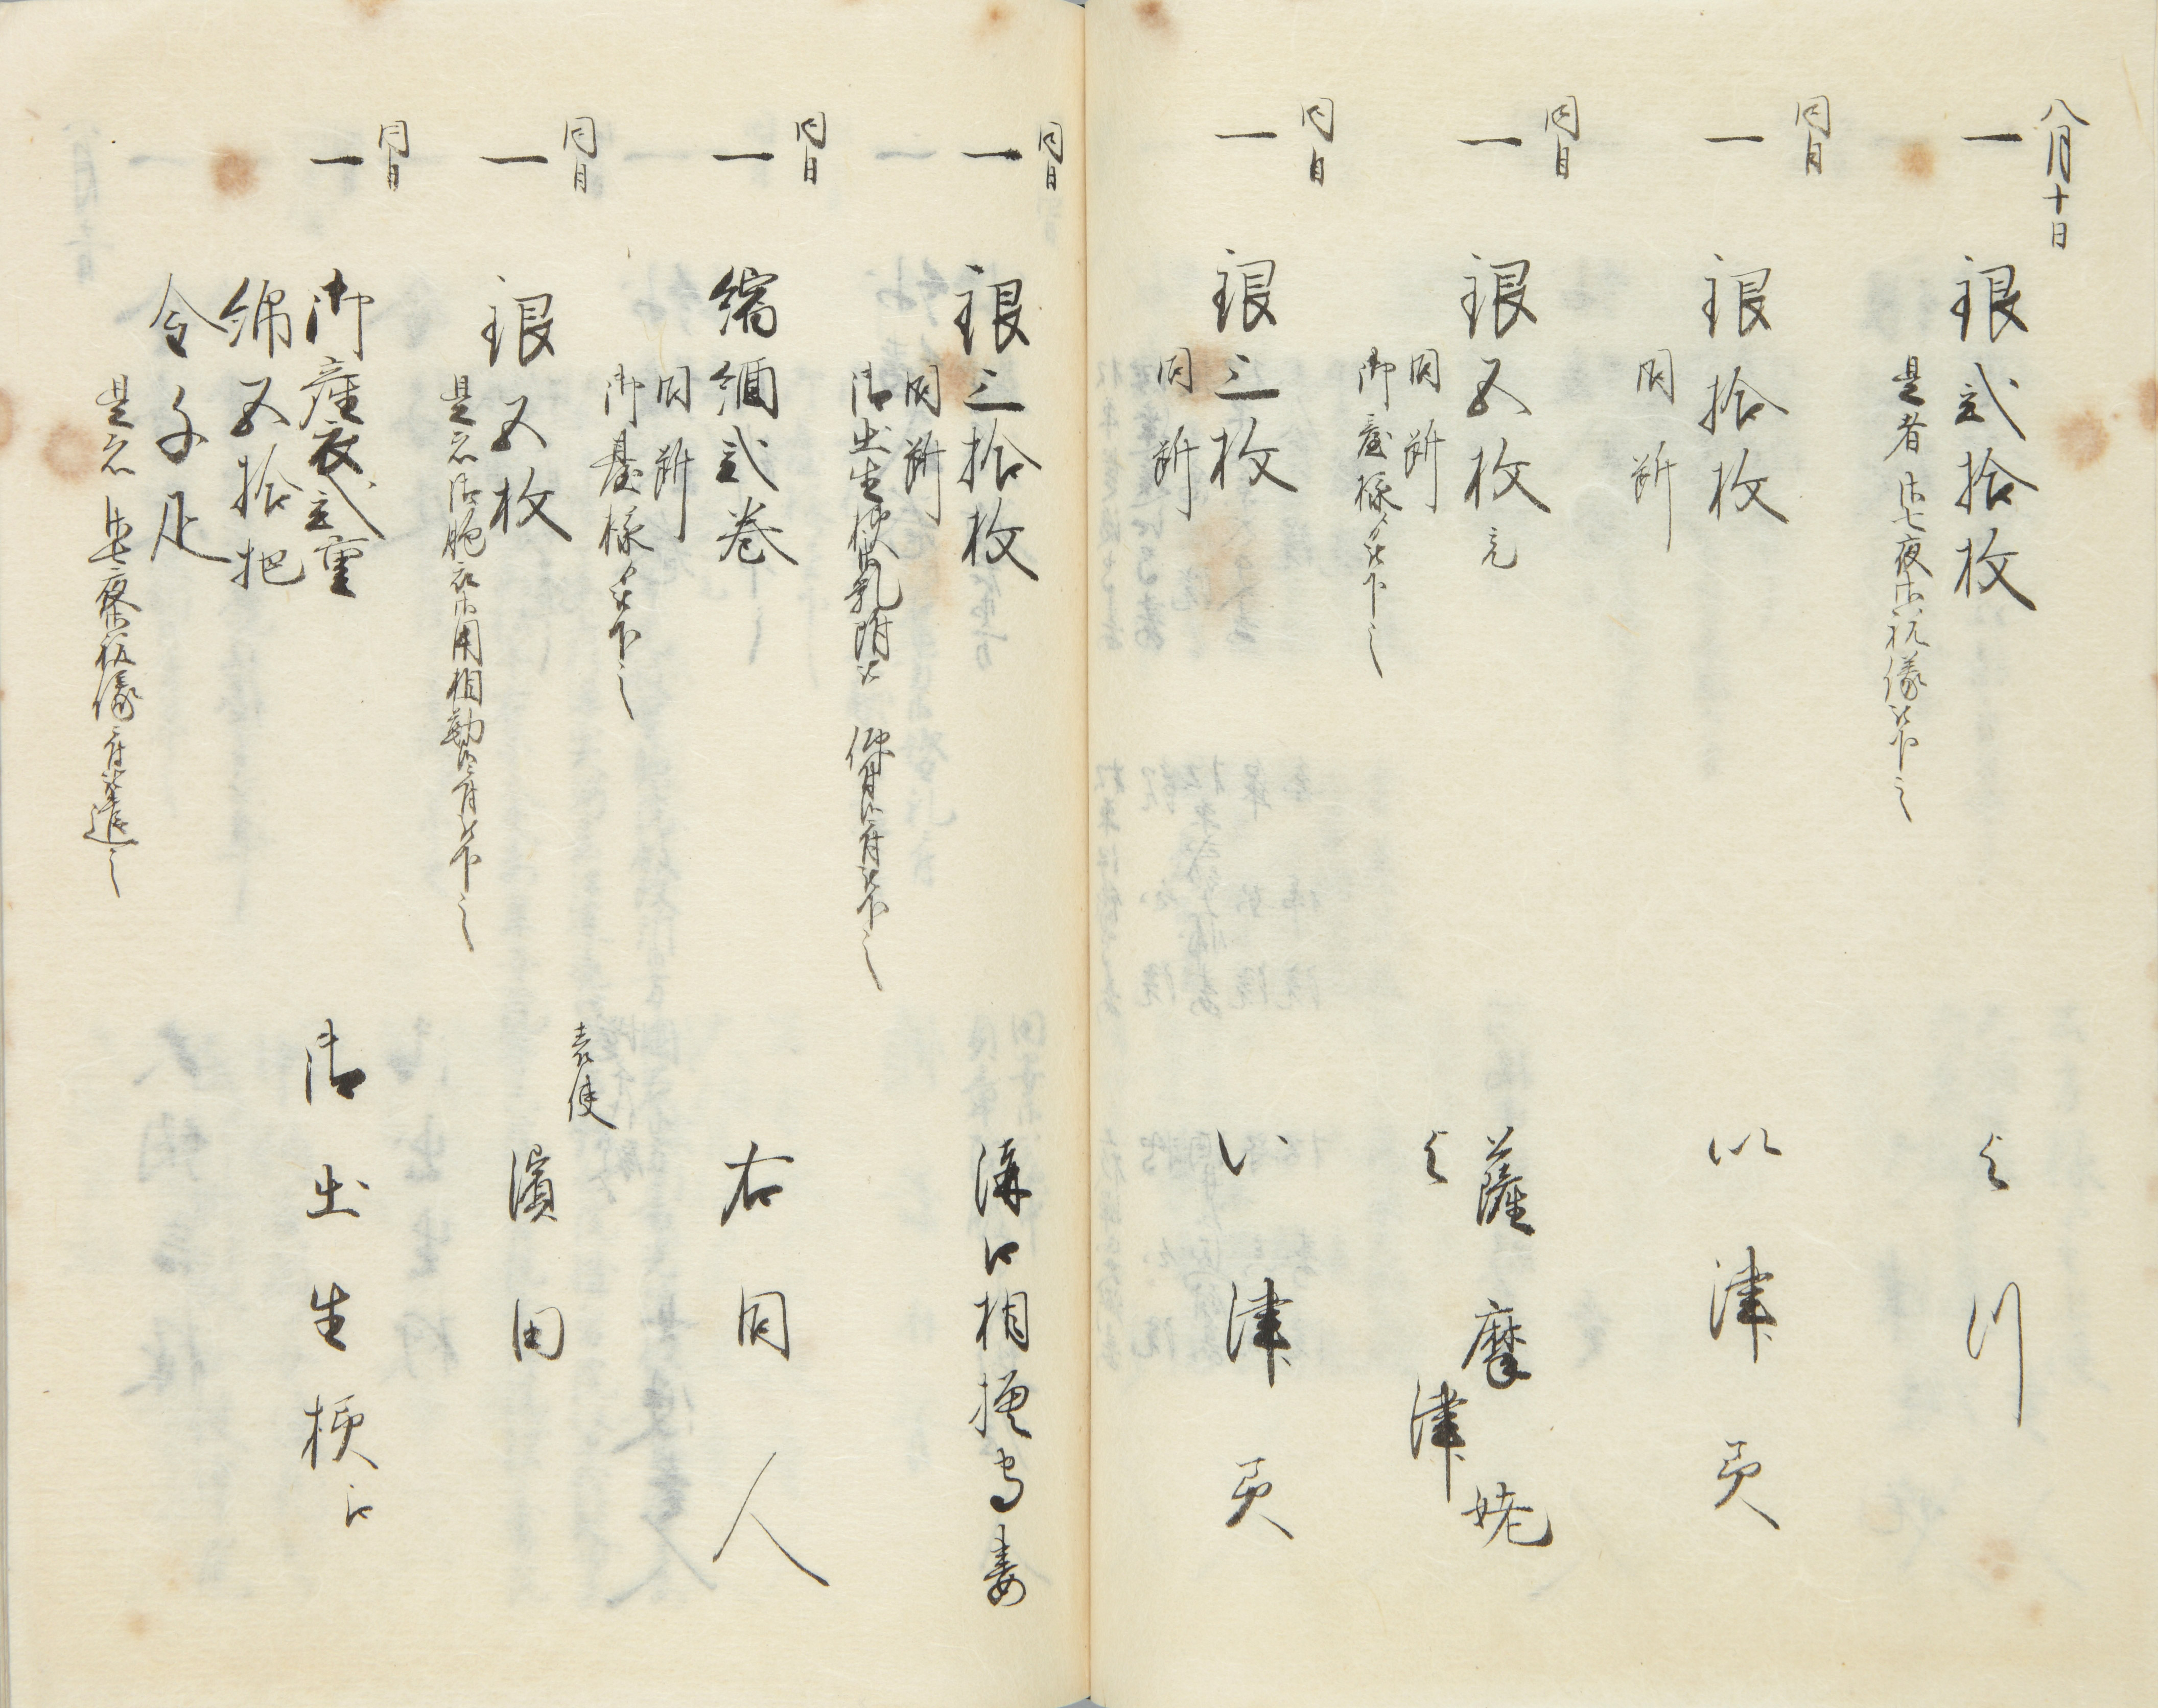 八月十日
一 銀弐拾枚
是者御七夜御祝儀被下之
よ川
同日
一 銀拾枚
同断
以津美
同日
一 銀五枚充
同断
御臺様ゟ被下之
薩摩
津姥
同日
一 銀三枚
同断
い津美
同日
一 銀三拾枚
同断
御出生様御乳附被
仰付候ニ付被下之
溝口相模守妻
同日
一 縮緬弐巻
同断
御臺様ゟ被下之
右同人
同日
一 銀五枚
是者御胞衣御用相勤候ニ付被下之
表使
濱田
同日
一 御産衣弐重
綿五拾把
令千疋
是者御七夜御祝儀ニ付被進之
御出生様江